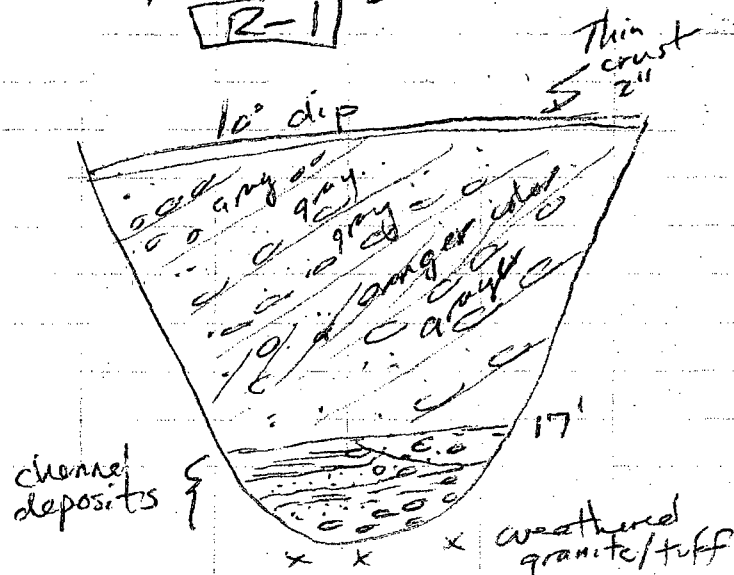 2-1
Thin
crust
2"
10° dip
gray
gray
gray
oranger color
grayer
17'
channel
deposits
weathered
granite/tuff